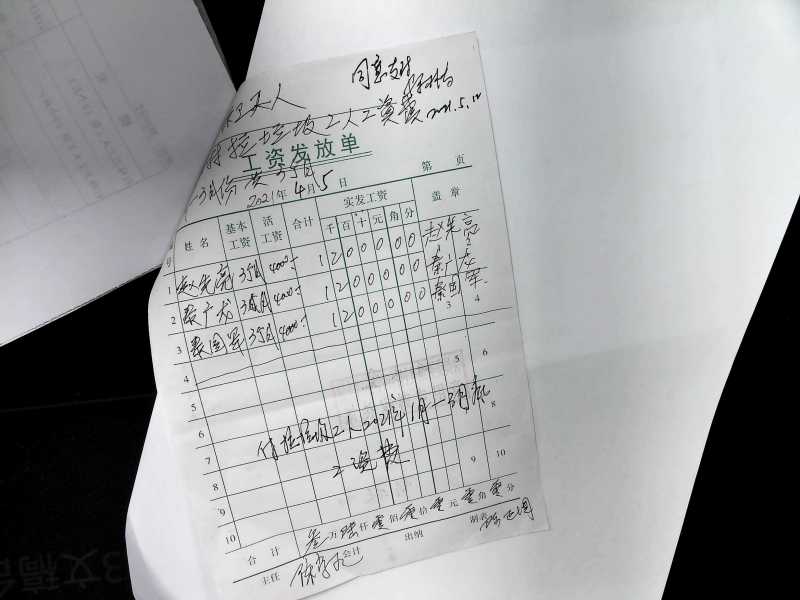 同意支付
2021.5.12
拉垃圾工人工资费
工资发放单
1-3月份 共3个月
2021年4月5日
第 页
姓名 基本工资 活工资 合计 实发工资 盖章
千 百 十 元 角 分
1 赵先亮 3个月 4000 1 2 0 0 0 0 0 赵先亮
2 秦广龙 3个月 4000 1 2 0 0 0 0 0 秦广龙
3 秦国军 3个月 4000 1 2 0 0 0 0 0 秦国军
3 4
4
5 5 6
6
付拉垃圾工人2021年1月-3月底
7 8
工资费
8
9 9 10
10
合计 叁万陆仟零佰零拾零元零角零分
主任 会计 出纳 制表